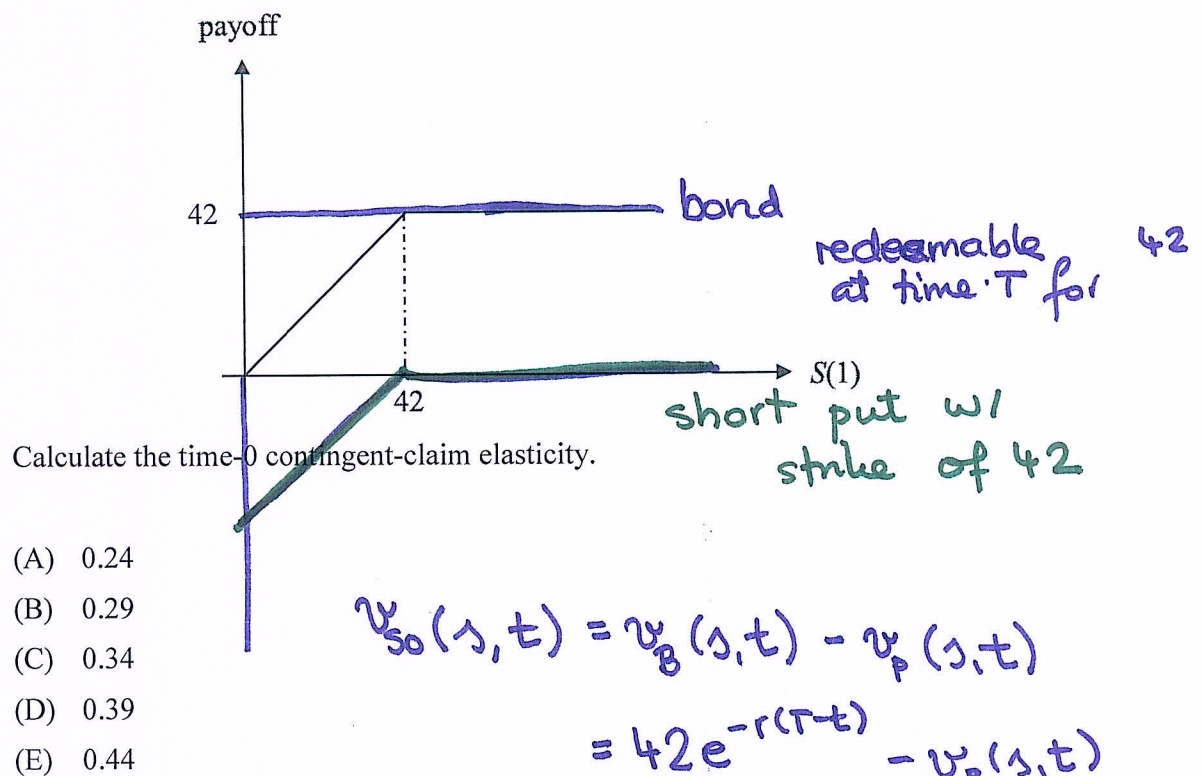 payoff
42
bond
redeemable 42
at time T for
S(1)
42
short put w/
strike of 42
Calculate the time-0 contingent-claim elasticity.
(A) 0.24
(B) 0.29
(C) 0.34
(D) 0.39
(E) 0.44
v_SO(s,t) = v_B(s,t) - v_P(s,t)
= 42e^{-r(T-t)} - v_P(s,t)